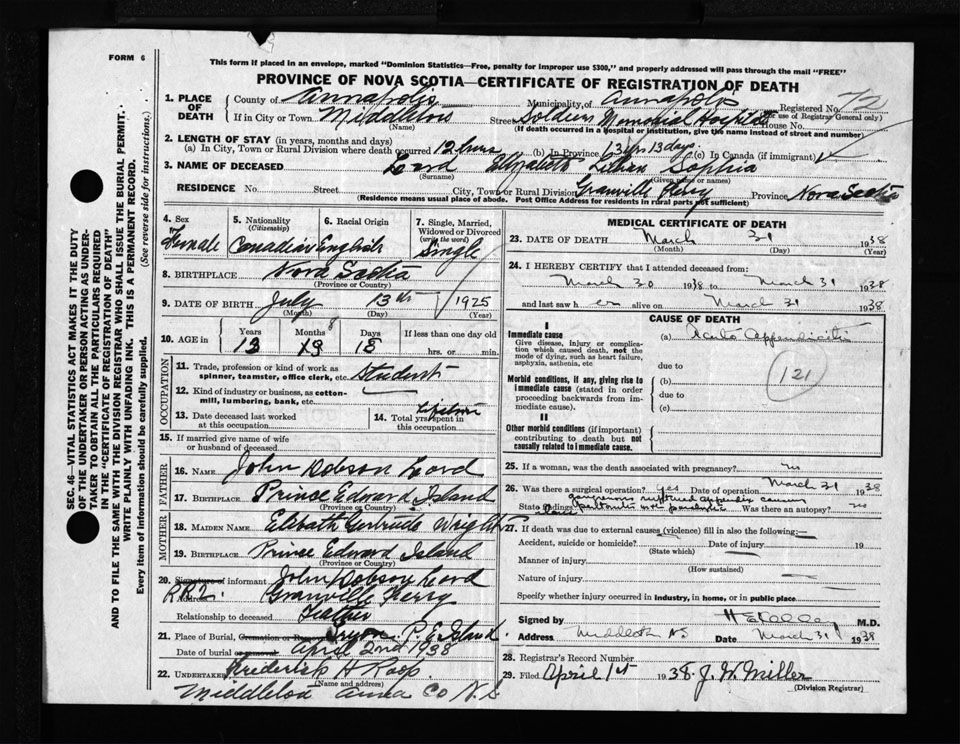 FORM 6
This form if placed in an envelope, marked "Dominion Statistics—Free, penalty for improper use $300," and properly addressed will pass through the mail "FREE"
PROVINCE OF NOVA SCOTIA—CERTIFICATE OF REGISTRATION OF DEATH
1. PLACE OF DEATH County of Annapolis Municipality of Annapolis Registered No. 72
(For use of Registrar General only)
If in City or Town Middleton Street Soldiers Memorial Hospital House No.
(Name) (If death occurred in a hospital or institution, give the name instead of street and number)
2. LENGTH OF STAY (in years, months and days)
(a) In City, Town or Rural Division where death occurred 12 hours (b) In Province 13 yrs 13 days (c) In Canada (if immigrant)
3. NAME OF DECEASED Leard Elizabeth Sophia
(Surname) (Given name or names)
RESIDENCE No. Street City, Town or Rural Division Granville Ferry Province Nova Scotia
(Residence means usual place of abode. Post Office Address for residents in rural parts not sufficient)
4. Sex Female
5. Nationality (Citizenship) Canadian
6. Racial Origin English
7. Single, Married, Widowed or Divorced (write the word) Single
8. BIRTHPLACE Nova Scotia
(Province or County)
9. DATE OF BIRTH July 13th 1925
(Month) (Day) (Year)
10. AGE in Years Months Days If less than one day old
13 8 18 hrs. or min.
OCCUPATION
11. Trade, profession or kind of work as spinner, teamster, office clerk, etc. Student
12. Kind of industry or business, as cotton-mill, lumbering, bank, etc.
13. Date deceased last worked at this occupation
14. Total yrs. spent in this occupation Lifetime
15. If married give name of wife or husband of deceased
FATHER
16. NAME John Dobson Leard
17. BIRTHPLACE Prince Edward Island
(Province or County)
MOTHER
18. MAIDEN NAME Gertrude Wright
19. BIRTHPLACE Prince Edward Island
(Province or County)
20. Signature of informant John Dobson Leard
Address R R 2. Granville Ferry
Relationship to deceased Father
21. Place of Burial, Cremation or Removal Tryon P. E. Island.
Date of burial or removal April 2nd 1938
22. UNDERTAKER Frederick H Roop
(Name and address)
Middleton Anna Co N.S
MEDICAL CERTIFICATE OF DEATH
23. DATE OF DEATH March 31 1938
(Month) (Day) (Year)
24. I HEREBY CERTIFY that I attended deceased from:
March 30 1938 to March 31 1938
and last saw h er alive on March 31 1938
CAUSE OF DEATH
I
Immediate cause
Give disease, injury or complication which caused death, not the mode of dying, such as heart failure, asphyxia, asthenia, etc
(a) Acute Appendicitis
due to
121
Morbid conditions, if any, giving rise to immediate cause (stated in order proceeding backwards from immediate cause).
(b)
due to
(c)
II
Other morbid conditions (if important) contributing to death but not causally related to immediate cause.
25. If a woman, was the death associated with pregnancy? no
26. Was there a surgical operation? Yes Date of operation March 31 1938
State findings gangrenous ruptured appendix Was there an autopsy? no
27. If death was due to external causes (violence) fill in also the following:—
Accident, suicide or homicide? Date of injury 19
(State which)
Manner of injury
(How sustained)
Nature of injury
Specify whether injury occurred in industry, in home, or in public place.
Signed by M.D.
Address Middleton NS Date March 31 1938
28. Registrar's Record Number
29. Filed April 1st 1938. J. W. Miller
(Division Registrar)
SEC. 46—VITAL STATISTICS ACT MAKES IT THE DUTY
OF THE UNDERTAKER OR PERSON ACTING AS UNDER-
TAKER TO OBTAIN ALL THE PARTICULARS REQUIRED
IN THE "CERTIFICATE OF REGISTRATION OF DEATH"
AND TO FILE THE SAME WITH THE DIVISION REGISTRAR WHO SHALL ISSUE THE BURIAL PERMIT.
WRITE PLAINLY WITH UNFADING INK. THIS IS A PERMANENT RECORD.
Every item of information should be carefully supplied. (See reverse side for instructions.)